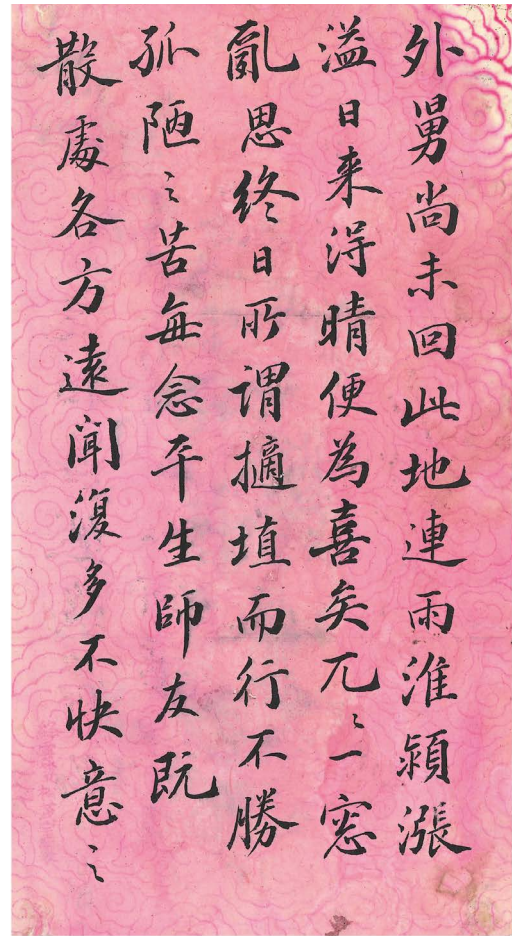 外舅尚未回此地連雨淮潁漲
溢日来淂晴便為喜矣兀〻一窓
亂思終日所謂擿埴而行不勝
孤陋之苦每念平生師友既
散處各方遠聞復多不快意之